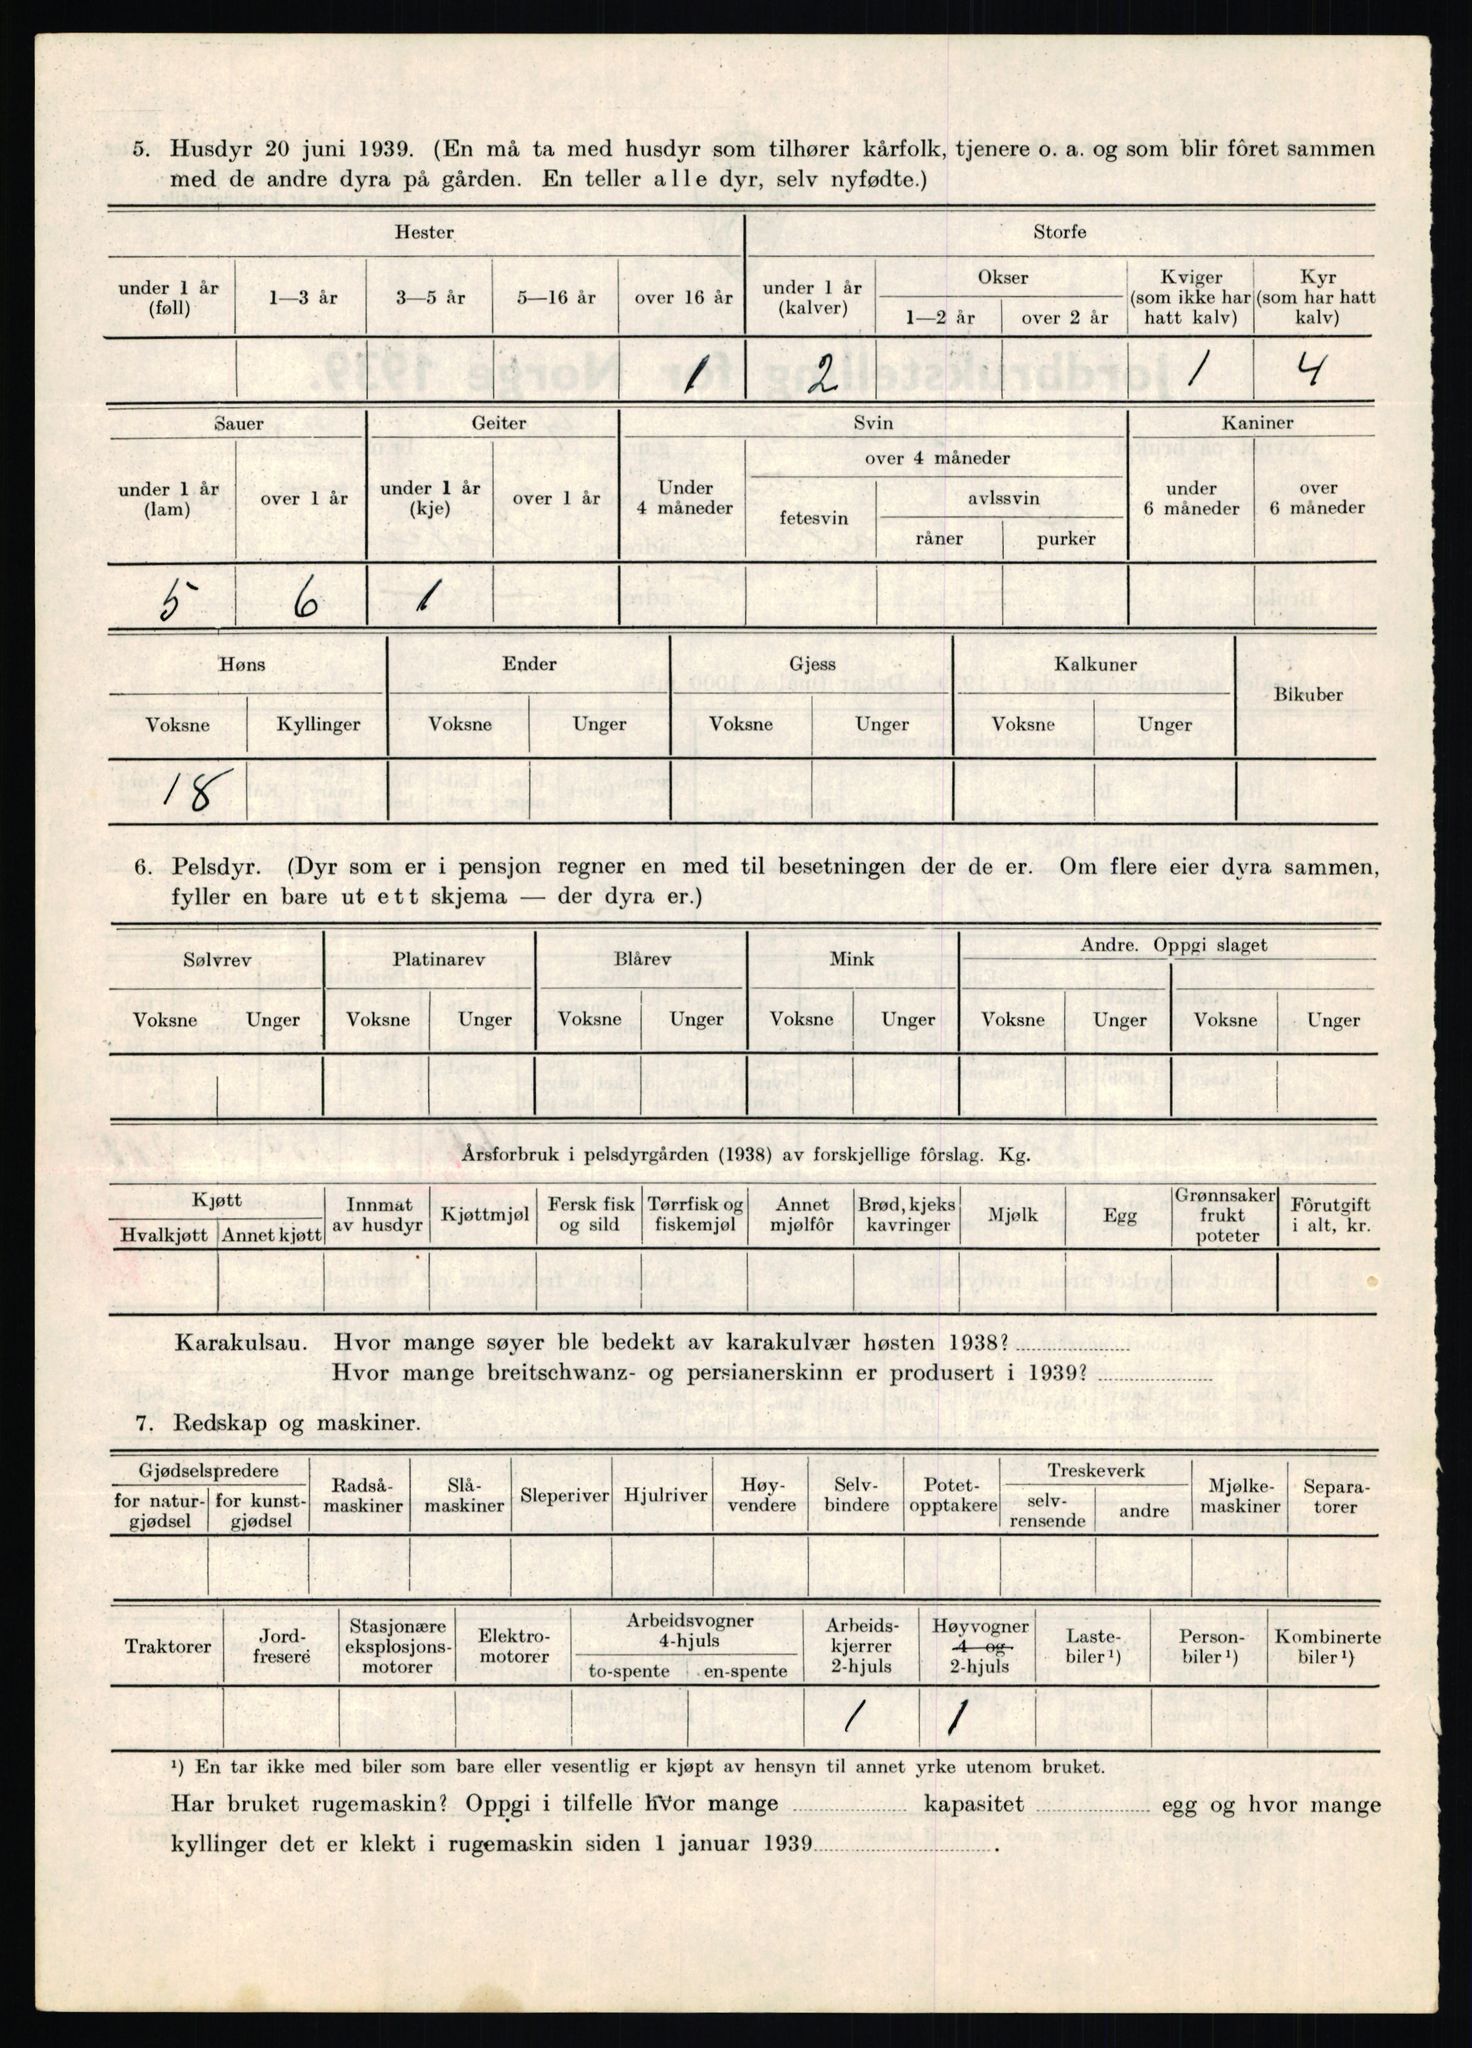 5. Husdyr 20 juni 1939. (En må ta med husdyr som tilhører kårfolk, tjenere o. a. og som blir fôret sammen
med de andre dyra på gården. En teller alle dyr, selv nyfødte.)
Hester Storfe
under 1 år (føll) 1—3 år 3—5 år 5—16 år over 16 år under 1 år (kalver) Okser 1—2 år over 2 år Kviger (som ikke har hatt kalv) Kyr (som har hatt kalv)
1 2 1 4
Sauer Geiter Svin Kaniner
under 1 år (lam) over 1 år under 1 år (kje) over 1 år Under 4 måneder over 4 måneder fetesvin avlssvin råner purker under 6 måneder over 6 måneder
5 6 1
Høns Ender Gjess Kalkuner Bikuber
Voksne Kyllinger Voksne Unger Voksne Unger Voksne Unger
18
6. Pelsdyr. (Dyr som er i pensjon regner en med til besetningen der de er. Om flere eier dyra sammen,
fyller en bare ut ett skjema — der dyra er.)
Sølvrev Platinarev Blårev Mink Andre. Oppgi slaget
Voksne Unger Voksne Unger Voksne Unger Voksne Unger Voksne Unger Voksne Unger
Årsforbruk i pelsdyrgården (1938) av forskjellige fôrslag. Kg.
Kjøtt Hvalkjøtt Annet kjøtt Innmat av husdyr Kjøttmjøl Fersk fisk og sild Tørrfisk og fiskemjøl Annet mjølfôr Brød, kjeks kavringer Mjølk Egg Grønnsaker frukt poteter Fôrutgift i alt, kr.
Karakulsau. Hvor mange søyer ble bedekt av karakulvær høsten 1938?
Hvor mange breitschwanz- og persianerskinn er produsert i 1939?
7. Redskap og maskiner.
Gjødselspredere for natur-gjødsel for kunst-gjødsel Radså-maskiner Slå-maskiner Sleperiver Hjulriver Høy-vendere Selv-bindere Potet-opptakere Treskeverk selv-rensende andre Mjølke-maskiner Separa-torer
Traktorer Jord-fresere Stasjonære eksplosjons-motorer Elektro-motorer Arbeidsvogner 4-hjuls to-spente en-spente Arbeids-kjerrer 2-hjuls Høyvogner 4 og 2-hjuls Laste-biler¹) Person-biler¹) Kombinerte biler¹)
1 1
¹) En tar ikke med biler som bare eller vesentlig er kjøpt av hensyn til annet yrke utenom bruket.
Har bruket rugemaskin? Oppgi i tilfelle hvor mange kapasitet egg og hvor mange
kyllinger det er klekt i rugemaskin siden 1 januar 1939.